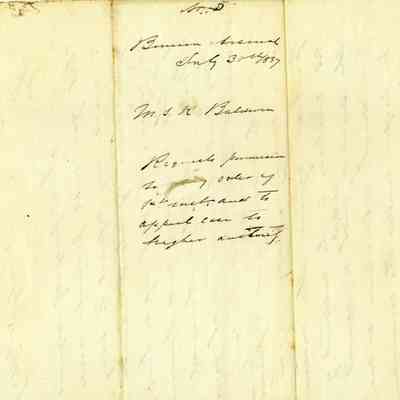 No. 5
Arsenal
July 30th 1837
M. S. K. Baldwin
Requests permission
to order of
1st inst. and to
appeal case to
higher authority.